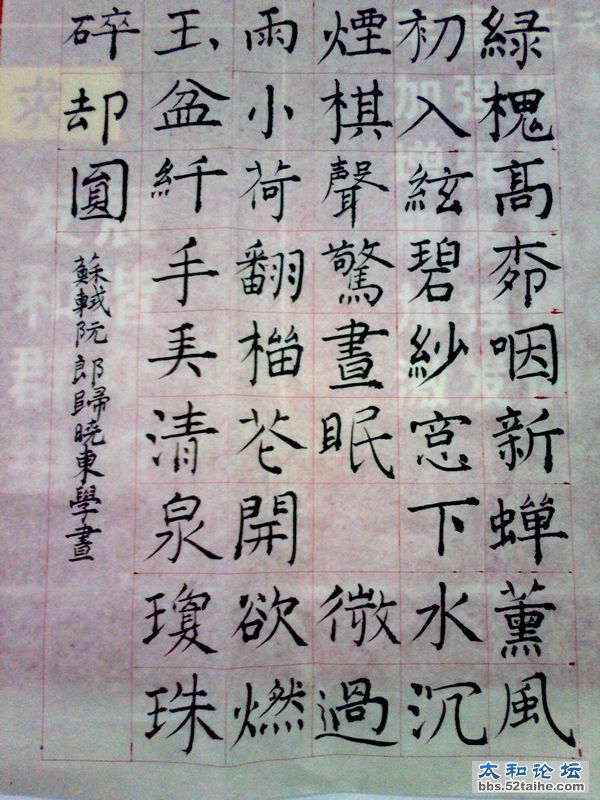 緑槐髙柳咽新蟬薰風
初入絃碧紗窓下水沉
煙棋聲驚晝眠 微過
雨小荷翻榴花開欲燃
玉盆紆手弄清泉瓊珠
碎却圓
蘇軾阮郎歸曉東學書
太和论坛
bbs.52taihe.com